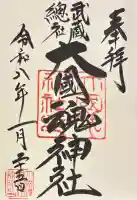 奉拝
武蔵
總社
大國魂神社
令和八年一月二十五日